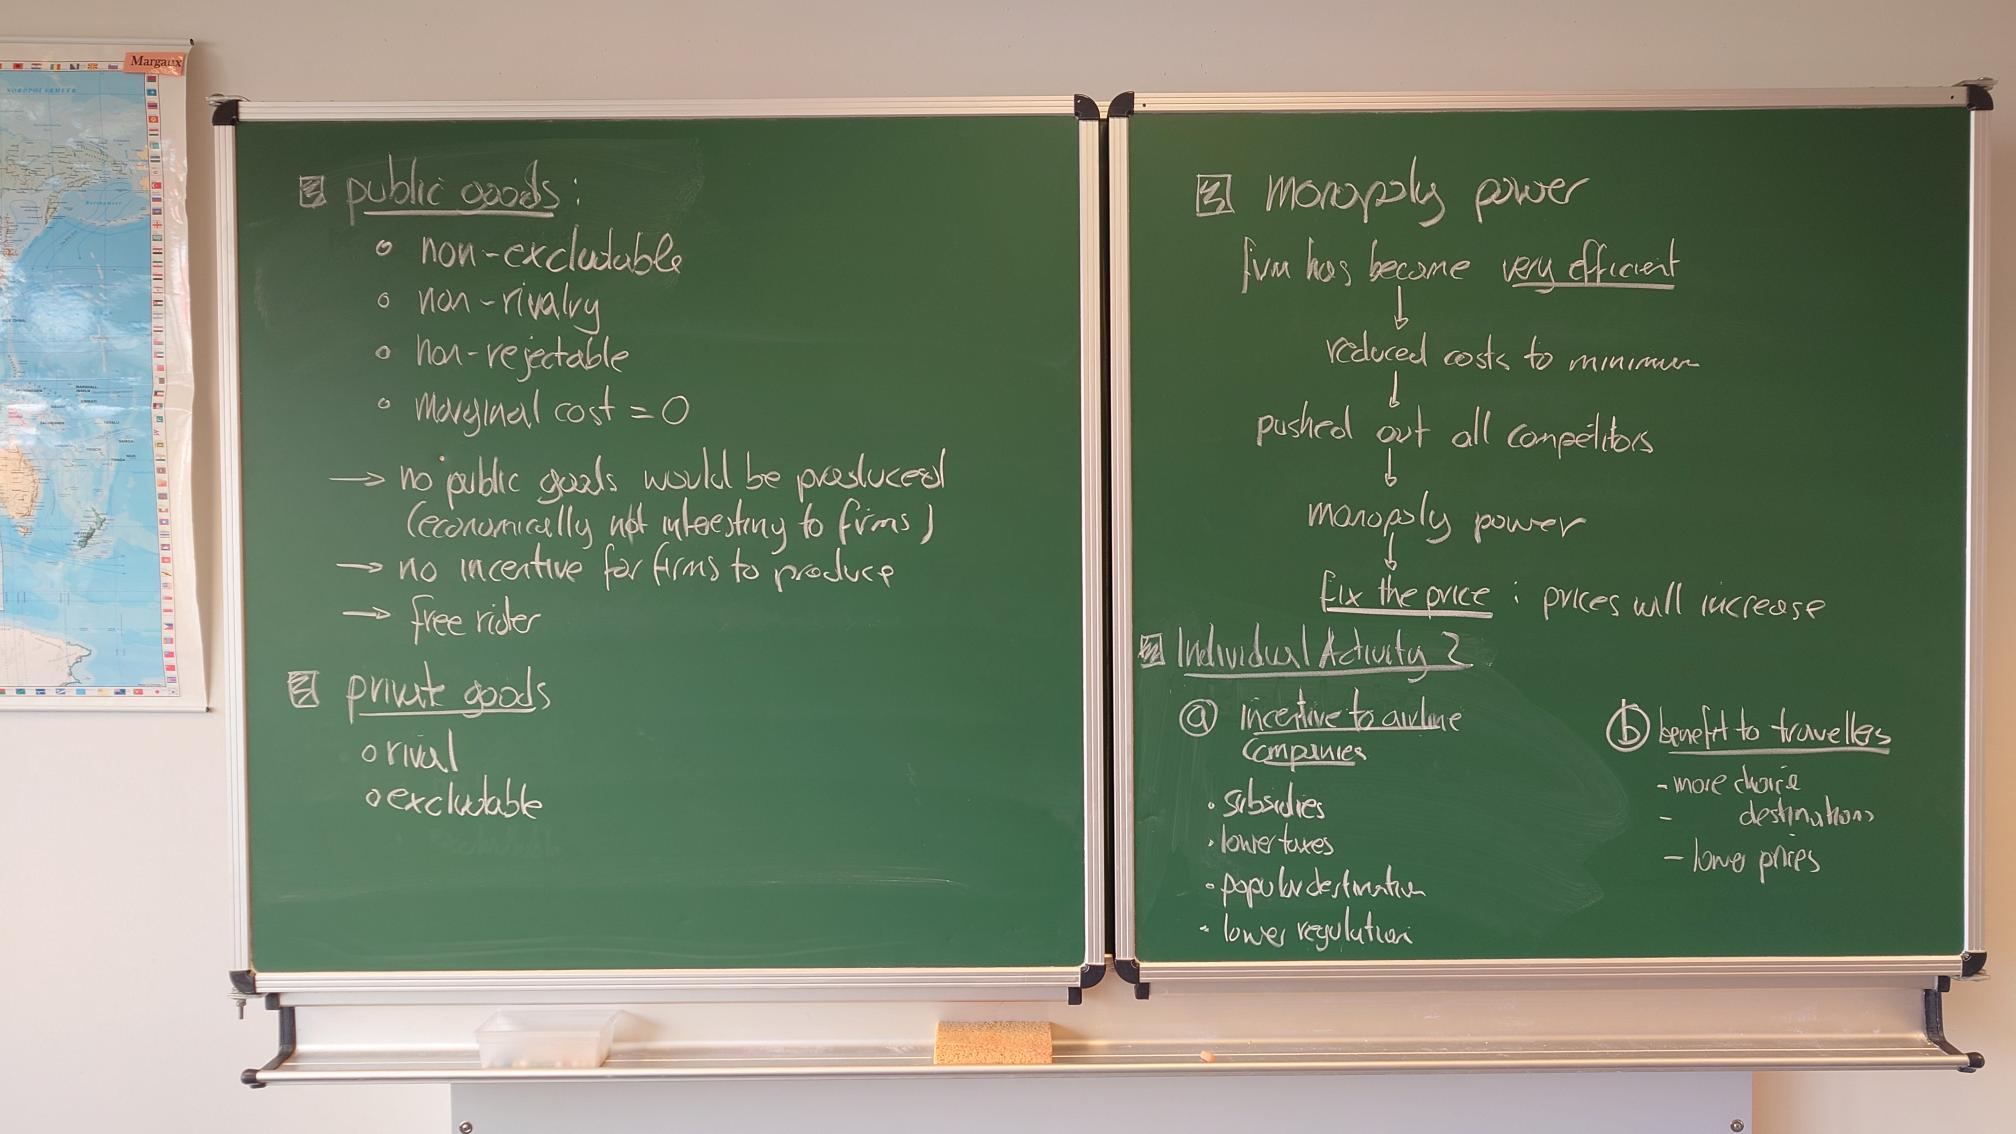 Margaux
NORDPOLARMEER
public goods:
non-excludable
non-rivalry
non-rejectable
marginal cost = 0
→ no public goods would be produced
(economically not interesting to firms)
→ no incentive for firms to produce
→ free rider
private goods
rival
excludable
monopoly power
firm has become very efficient
↓
reduced costs to minimum
↓
pushed out all competitors
↓
monopoly power
↓
fix the price : prices will increase
Individual Activity 2
a incentive to airline
companies
• subsidies
• lower taxes
• popular destination
• lower regulation
b benefit to travellers
- more choice
- destinations
- lower prices